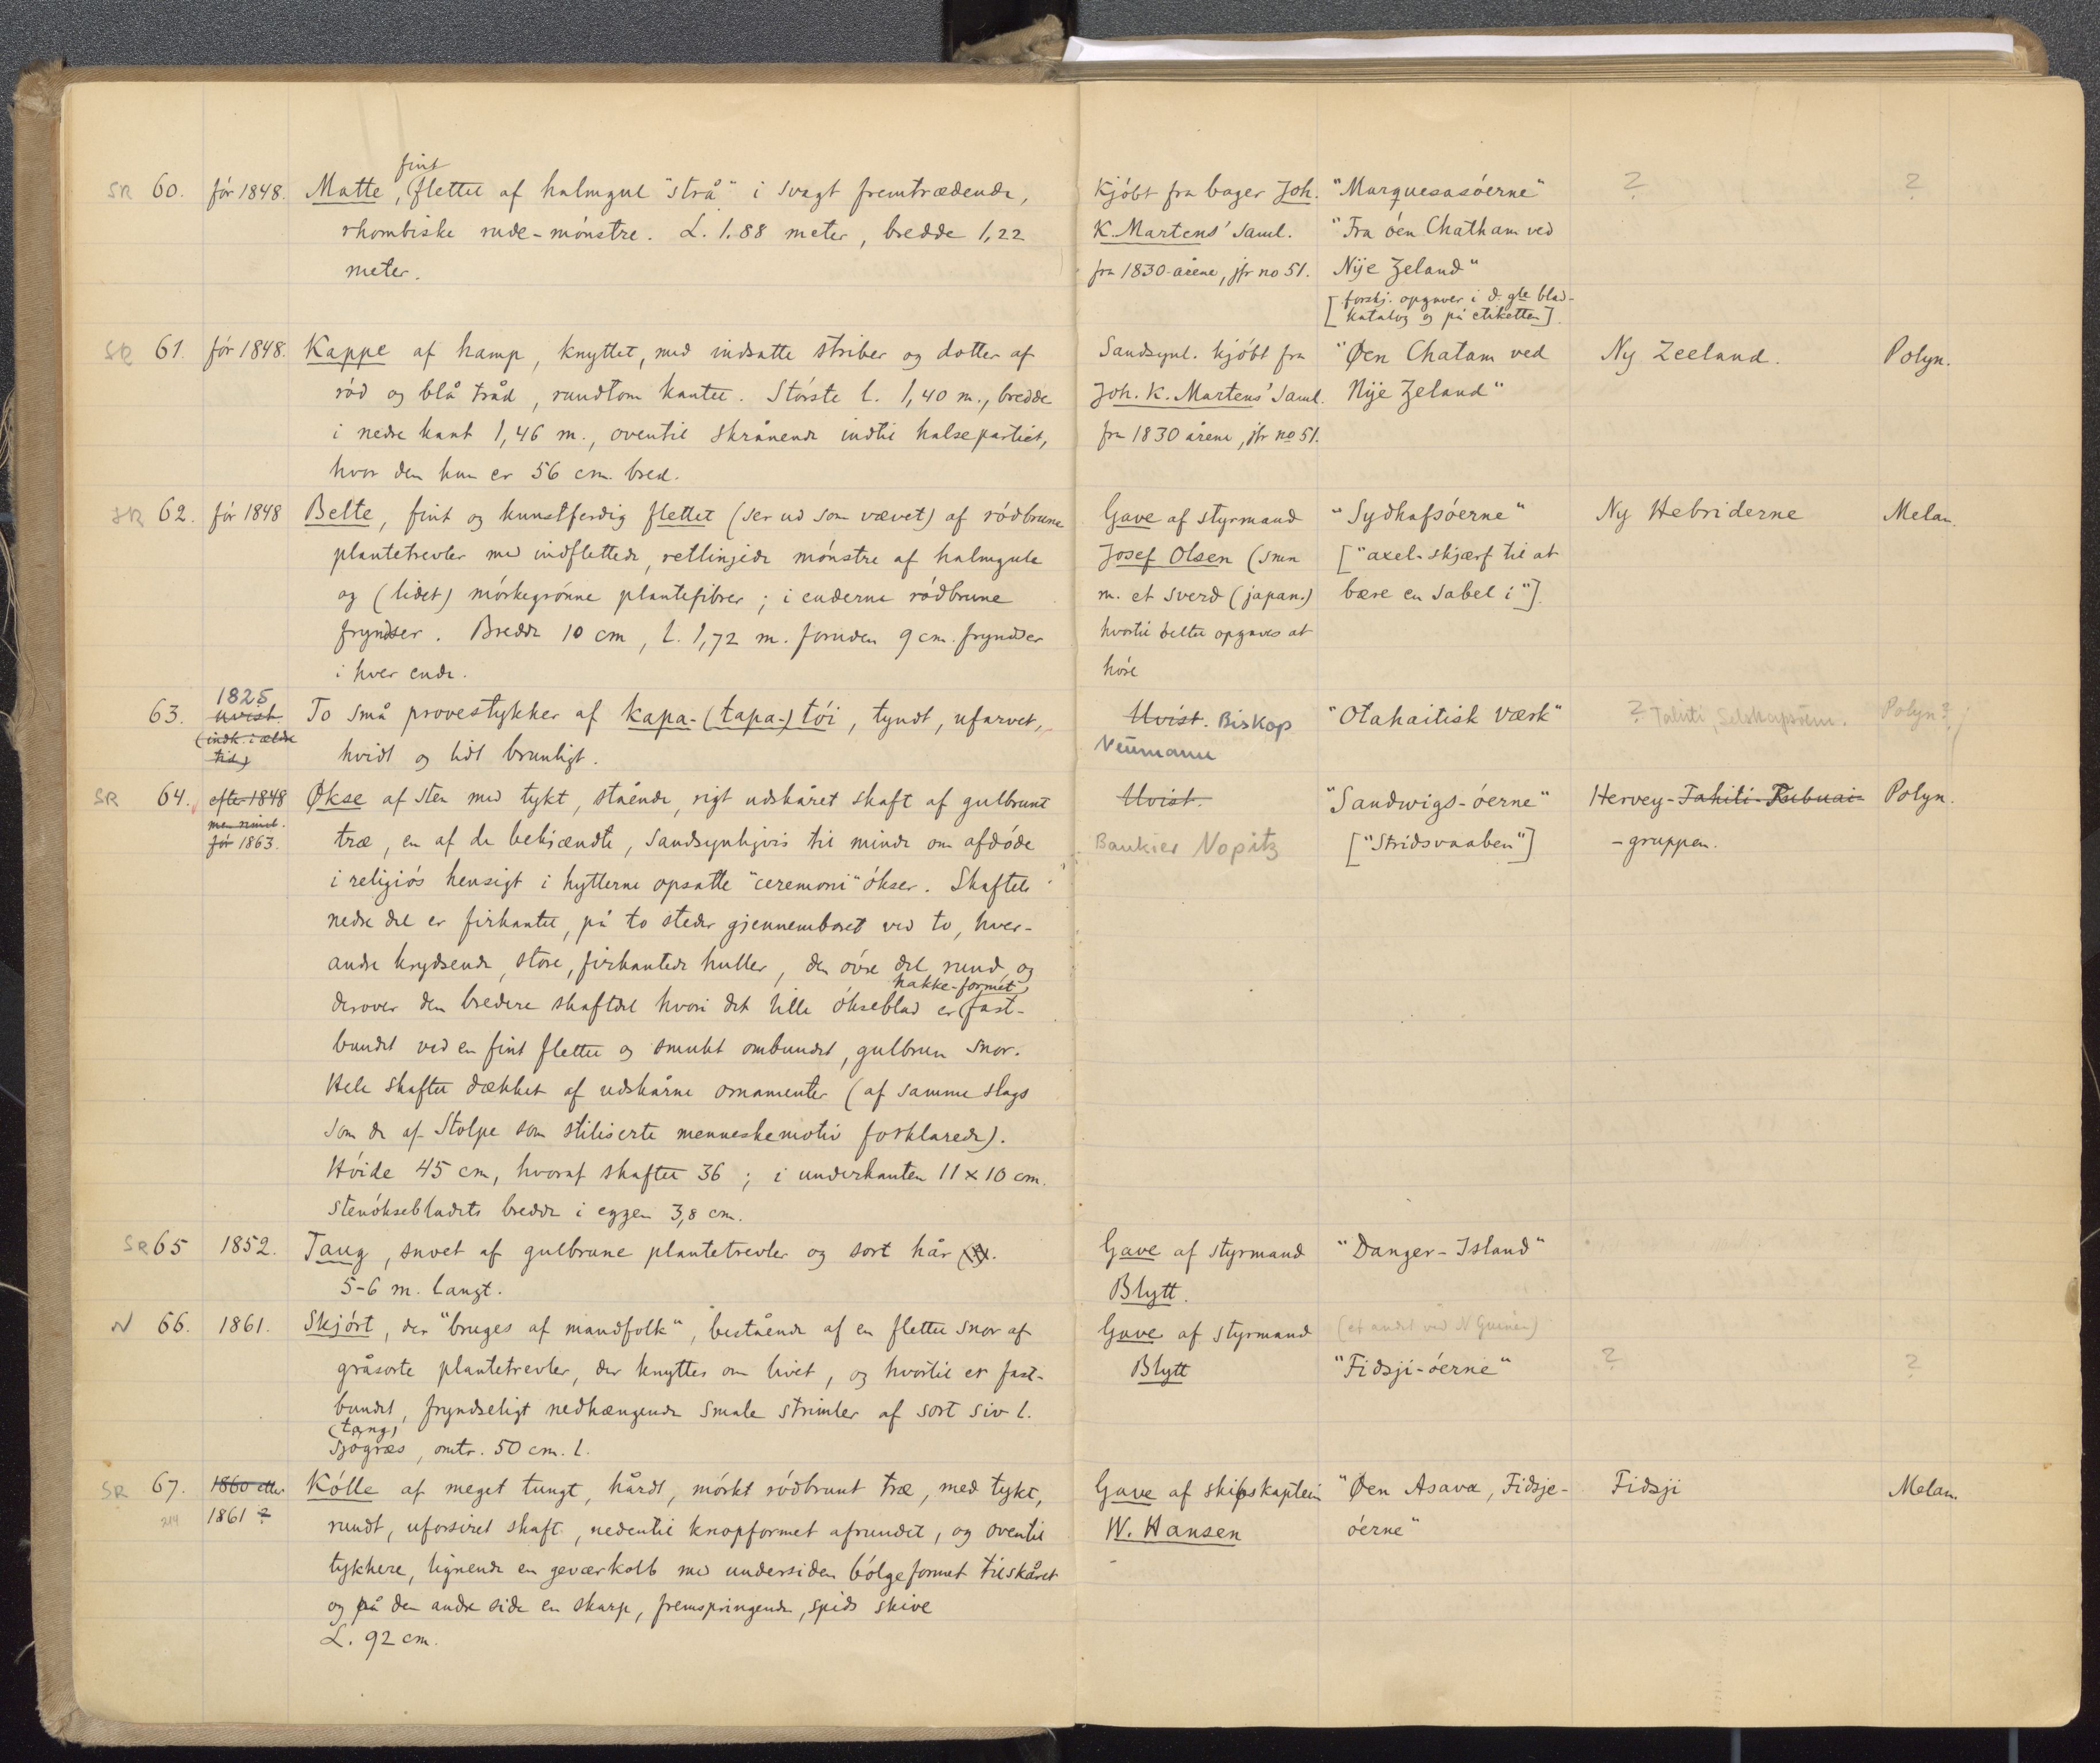 SR 60. før 1848. Matte, fint flettet af halmgul "strå" i svagt fremtrædende,
rhombiske rude-mønstre. L. 1.88 meter, bredde 1,22
meter.
Kjøbt fra bager Joh.
K. Martens' saml.
fra 1830-årene, jfr no 51.
"Marquesasøerne"
"Fra øen Chatham ved
Nije Zeland"
[forskj. opgaver i d. gle blad-
katalog og på etiketten].
?
?
SR 61. før 1848. Kappe af hamp, knyttet, med indsatte striber og dotter af
rød og blå tråd, rundtom kantet. Største l. 1,40 m., bredde
i nedre kant 1,46 m., oventil skrånende indtil halspartiet,
hvor den kun er 56 cm. bred.
Sandsynl. kjøbt fra
Joh. K. Martens' saml.
fra 1830 årene, jfr no 51.
"Øen Chatam ved
Nije Zeland"
Ny Zeeland.
Polyn.
SR 62. før 1848 Belte, fint og kunstferdig flettet (ser ud som vævet) af rødbrune
plantetrevler med indflettede, retlinjede mønstre af halmgule
og (lidet) mørkegrønne plantefibrer; i enderne rødbrune
fryndser. Bredde 10 cm, l. 1,72 m. foruden 9 cm. fryndser
i hver ende.
Gave af styrmand
Josef Olsen (smn
m. et sverd (japan.)
hvortil beltet opgaves at
høre
"Sydhafsøerne"
["axel-skjærf til at
bære en sabel i"].
Ny Hebriderne
Melan.
1825
63. uvist. To små prøvestykker af kapa- (tapa-) tøi, tyndt, ufarvet,
(indk. i ældre
tid)
hvidt og lidt brunligt.
Uvist. Biskop
Neumann
"Otahaitisk værk"
? Tahiti, Selskapsøerne.
Polyn?
SR 64. efter 1848 Økse af sten med tykt, stående, rigt udskåret skaft af gulbrunt
men rimel.
før 1863.
træ, en af de bekjændte, sandsynligvis til minde om afdøde
i religiøs hensigt i hytterne opsatte "ceremoni" økser. Skaftets
nedre del er firkantet, på to steder gjennemboret ved to, hver-
andre krydsende, store, firkantede huller, den øvre del rund, og
hakke-formet
derover den bredere skaftdel hvori det lille økseblad er fast-
bundet ved en fint flettet og smukt ombundet, gulbrun snor.
Hele skaftet dækket af udskårne ornamenter (af samme slags
som de af Stolpe som stiliserte menneskemotiv forklarede).
Høide 45 cm, hvoraf skaftet 36; i underkanten 11 x 10 cm.
Stenøksebladets bredde i eggen 3,8 cm.
Uvist.
Bankier Nopitz
"Sandwigs-øerne"
["Stridsvaaben"]
Hervey-Tahiti-Tubuai-
-gruppen.
Polyn.
SR 65 1852. Taug, snoet af gulbrune plantetrevler og sort hår.
5-6 m. langt.
Gave af styrmand
Blytt.
"Danger-Island"
N 66. 1861. Skjørt, der "bruges af mandfolk", bestående af en flettet snor af
gråsorte plantetrevler, der knyttes om livet, og hvortil er fast-
bundet, fryndseligt nedhængende smale strimler af sort siv l.
(tang)
sjøgræs, omtr. 50 cm. l.
Gave af styrmand
Blytt
(et andet ved N Guinea)
"Fidsji-øerne"
?
?
SR 67. 1860 eller Kølle af meget tungt, hårdt, mørkt rødbrunt træ, med tykt,
214 1861 ? rundt, uforsiret skaft, nedentil knopformet afrundet, og oventil
tykkere, lignende en geværkolb med undersiden bølgeformet tilskåret
og på den andre side en skarp, fremspringende, spids skive
L. 92 cm.
Gave af skibskaptein
W. Hansen
"Øen Asava, Fidsje-
øerne"
Fidsji
Melan.